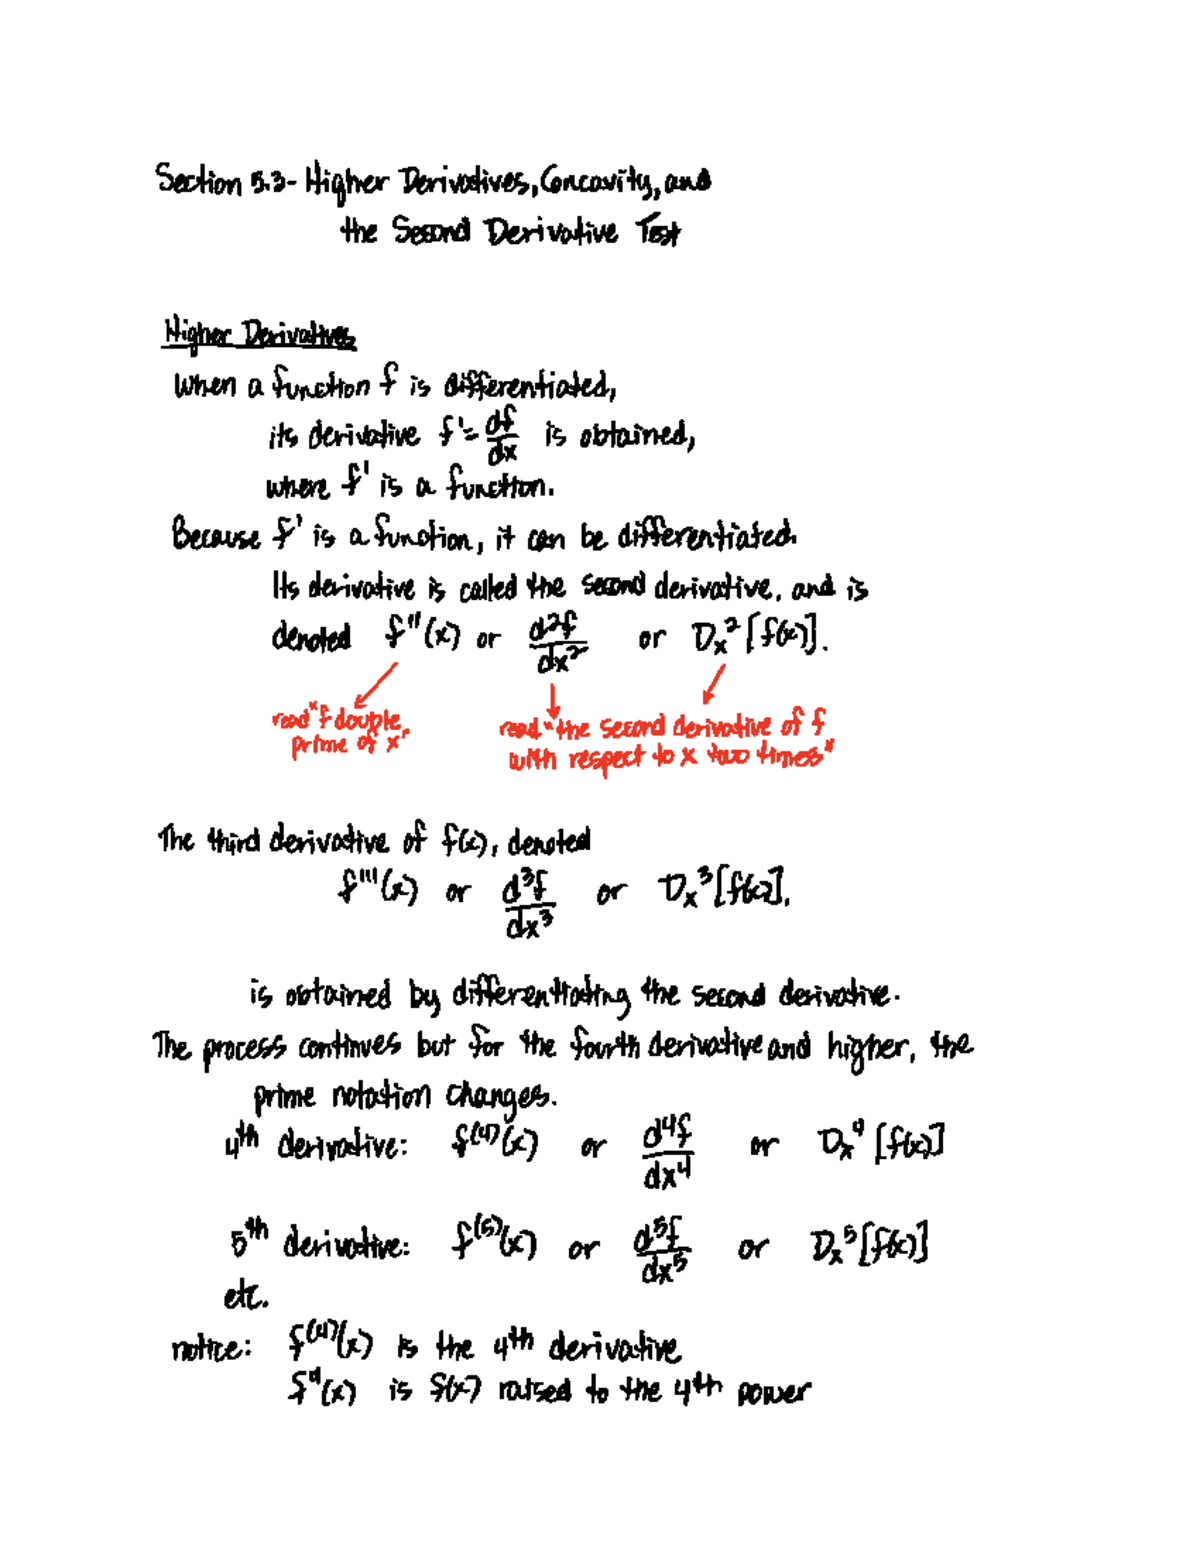 Section 5.3- Higher Derivatives, Concavity, and
the Second Derivative Test
Higher Derivatives
When a function f is differentiated,
its derivative f' = df/dx is obtained,
where f' is a function.
Because f' is a function, it can be differentiated.
Its derivative is called the second derivative, and is
denoted f''(x) or d²f/dx² or Dₓ²[f(x)].
read "f double
prime of x"
read "the second derivative of f
with respect to x two times"
The third derivative of f(x), denoted
f'''(x) or d³f/dx³ or Dₓ³[f(x)].
is obtained by differentiating the second derivative.
The process continues but for the fourth derivative and higher, the
prime notation changes.
4ᵗʰ derivative: f⁽⁴⁾(x) or d⁴f/dx⁴ or Dₓ⁴[f(x)]
5ᵗʰ derivative: f⁽⁵⁾(x) or d⁵f/dx⁵ or Dₓ⁵[f(x)]
etc.
notice: f⁽⁴⁾(x) is the 4ᵗʰ derivative
f⁴(x) is f(x) raised to the 4ᵗʰ power